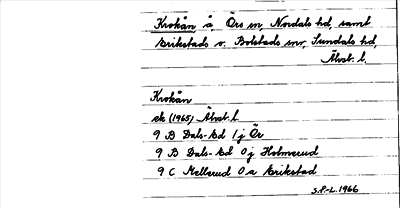 Krokån, å, Örs sn, Nordals hd, samt
Erikstads o. Bolstads snr, Sundals hd,
Älvsb. l.
Krokån
ek (1965) Älvsb. l.
9 B Dals-Ed 1 j Ör
9 B Dals-Ed 0 j Holmerud
9 C Mellerud 0 a Erikstad
S.P-L. 1966